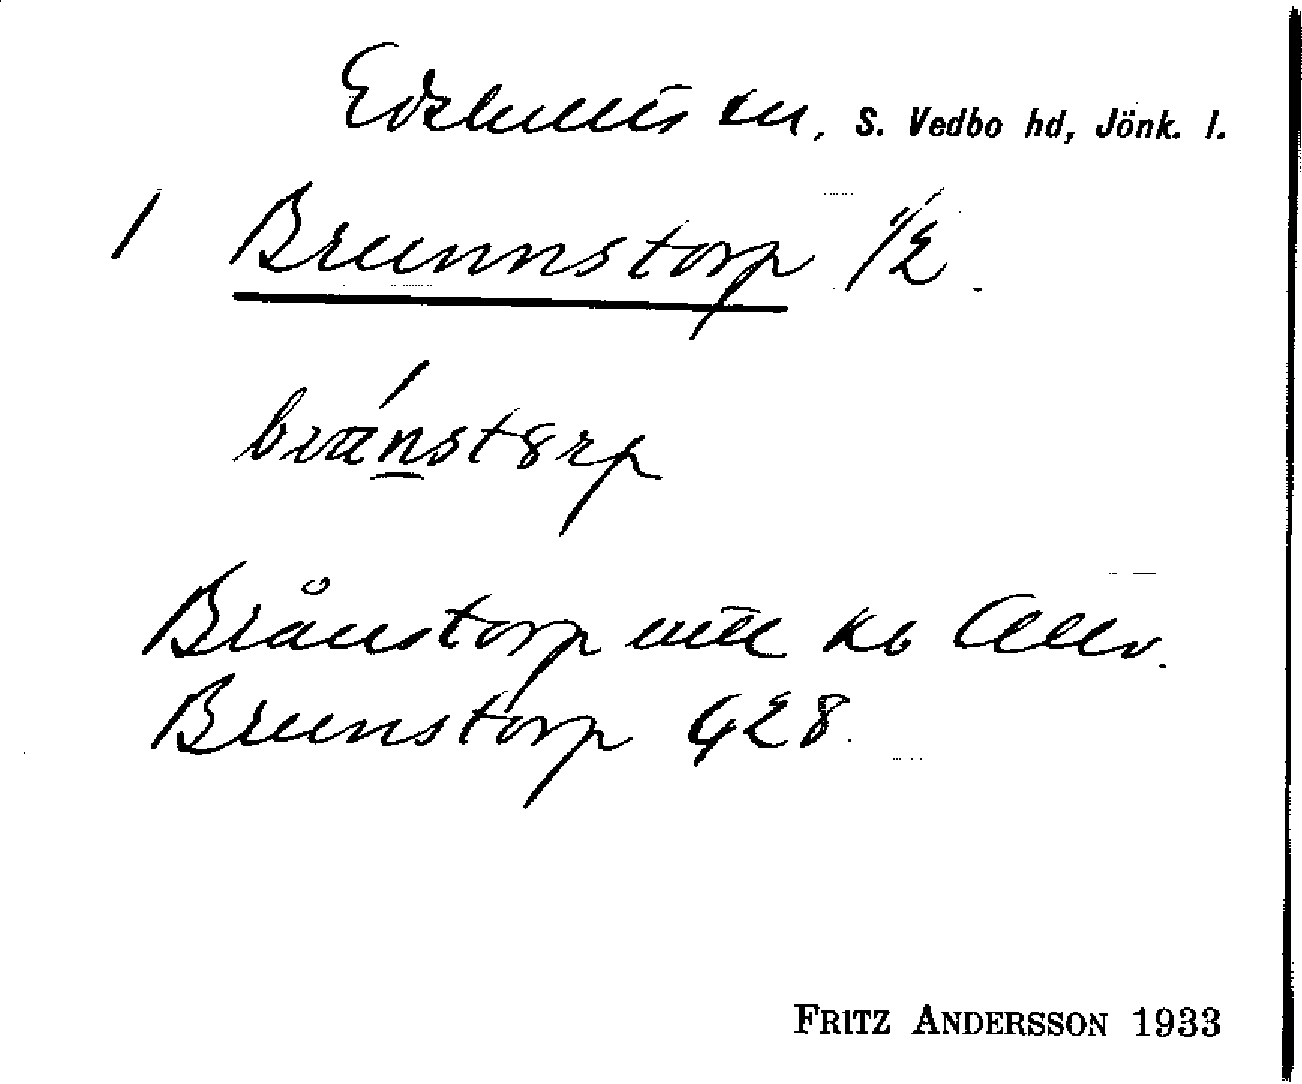 Edshults sn, S. Vedbo hd, Jönk. l.
1 Brunnstorp 1/2
Brånstorp Allv.
Brunstorp G28
FRITZ ANDERSSON 1933